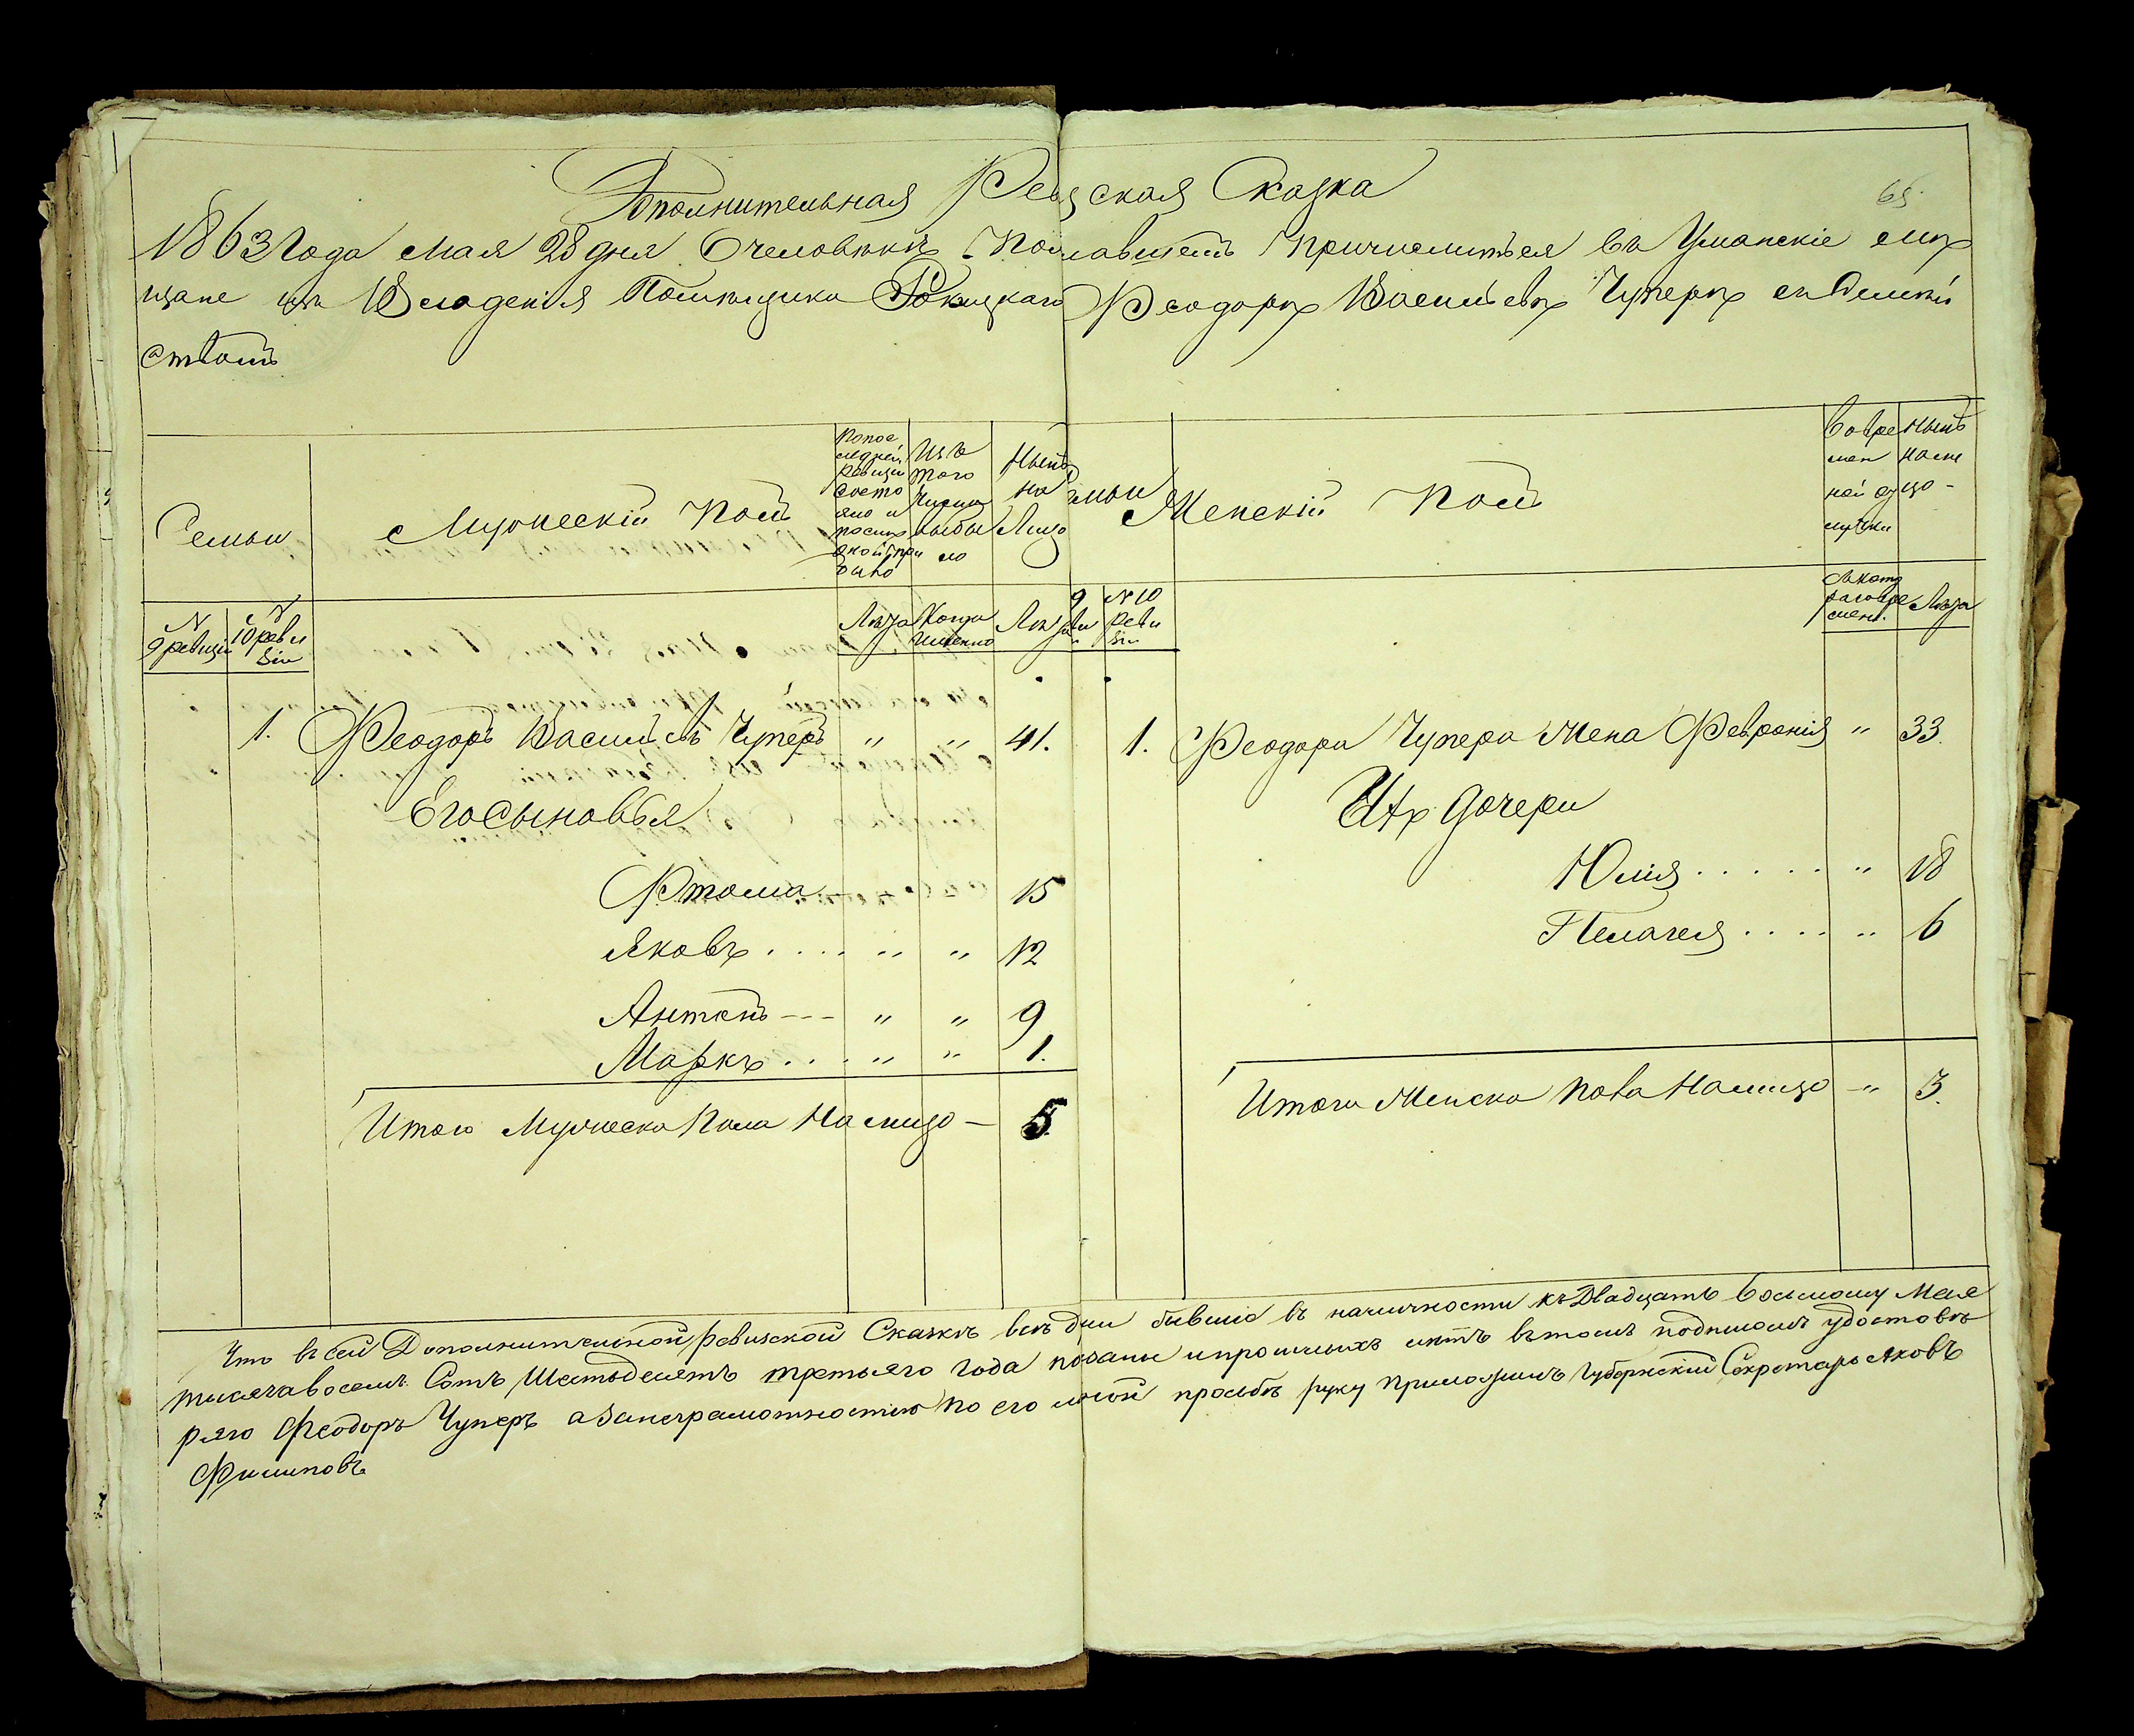 Дополнительная Ревизская Сказка
65.
1863 Года Мая 28 дня О человѣкѣ Пожелавшемъ Причислиться въ Уманскіе мѣ
щане изъ Владенія Помѣщика Рокицкаго Феодорѣ Васильевѣ Чуперѣ съ Семей
ствомъ
Семьи
Мужескій Полъ
По пос
ледней
ревизіи
состо
яло и
послѣ
оной при
было
Изъ
того
Числа
выбы
ло
Нынѣ
на
Лицо
Семьи
Женскій Полъ
Во вре
мен
ной от
лучки
Нынѣ
на ли
цо -
N
9 ревизіи
N
10 реви
зіи
Лѣта
Когда
Именно
Лѣта
9
реви
зіи
N 10
Реви
зіи
Съ кото
раго вре
мени.
Лѣта
1. Феодоръ Васильевъ Чуперъ " " 41.
1. Феодора Чупера Жена Февронія " 33.
Его Сыновья
Ихъ дочери
Фтома 15
Юлія . . . . . " 18
Яковъ . . . . " " 12
Пелагея . . . . " 6
Антонъ --- " " 9
Маркъ . . . . " " 1.
Итого Мужеска Пола На лицо — 5.
Итого Женска Пола На лицо — " 3.
Что въ сей Дополнительной ревизской Сказкѣ всѣ дши бывшие въ наличности къ Двадцать Восьмому Мая
тысяча восемь Сотъ Шестьдесятъ третьяго года показаны и прошлыхъ нѣтъ въ томъ подписомъ удостовѣ
ряю Феодоръ Чуперъ а За неграмотностію по его личной прозьбѣ руку приложилъ Губернскій Секретарь Яковъ
Филиповъ